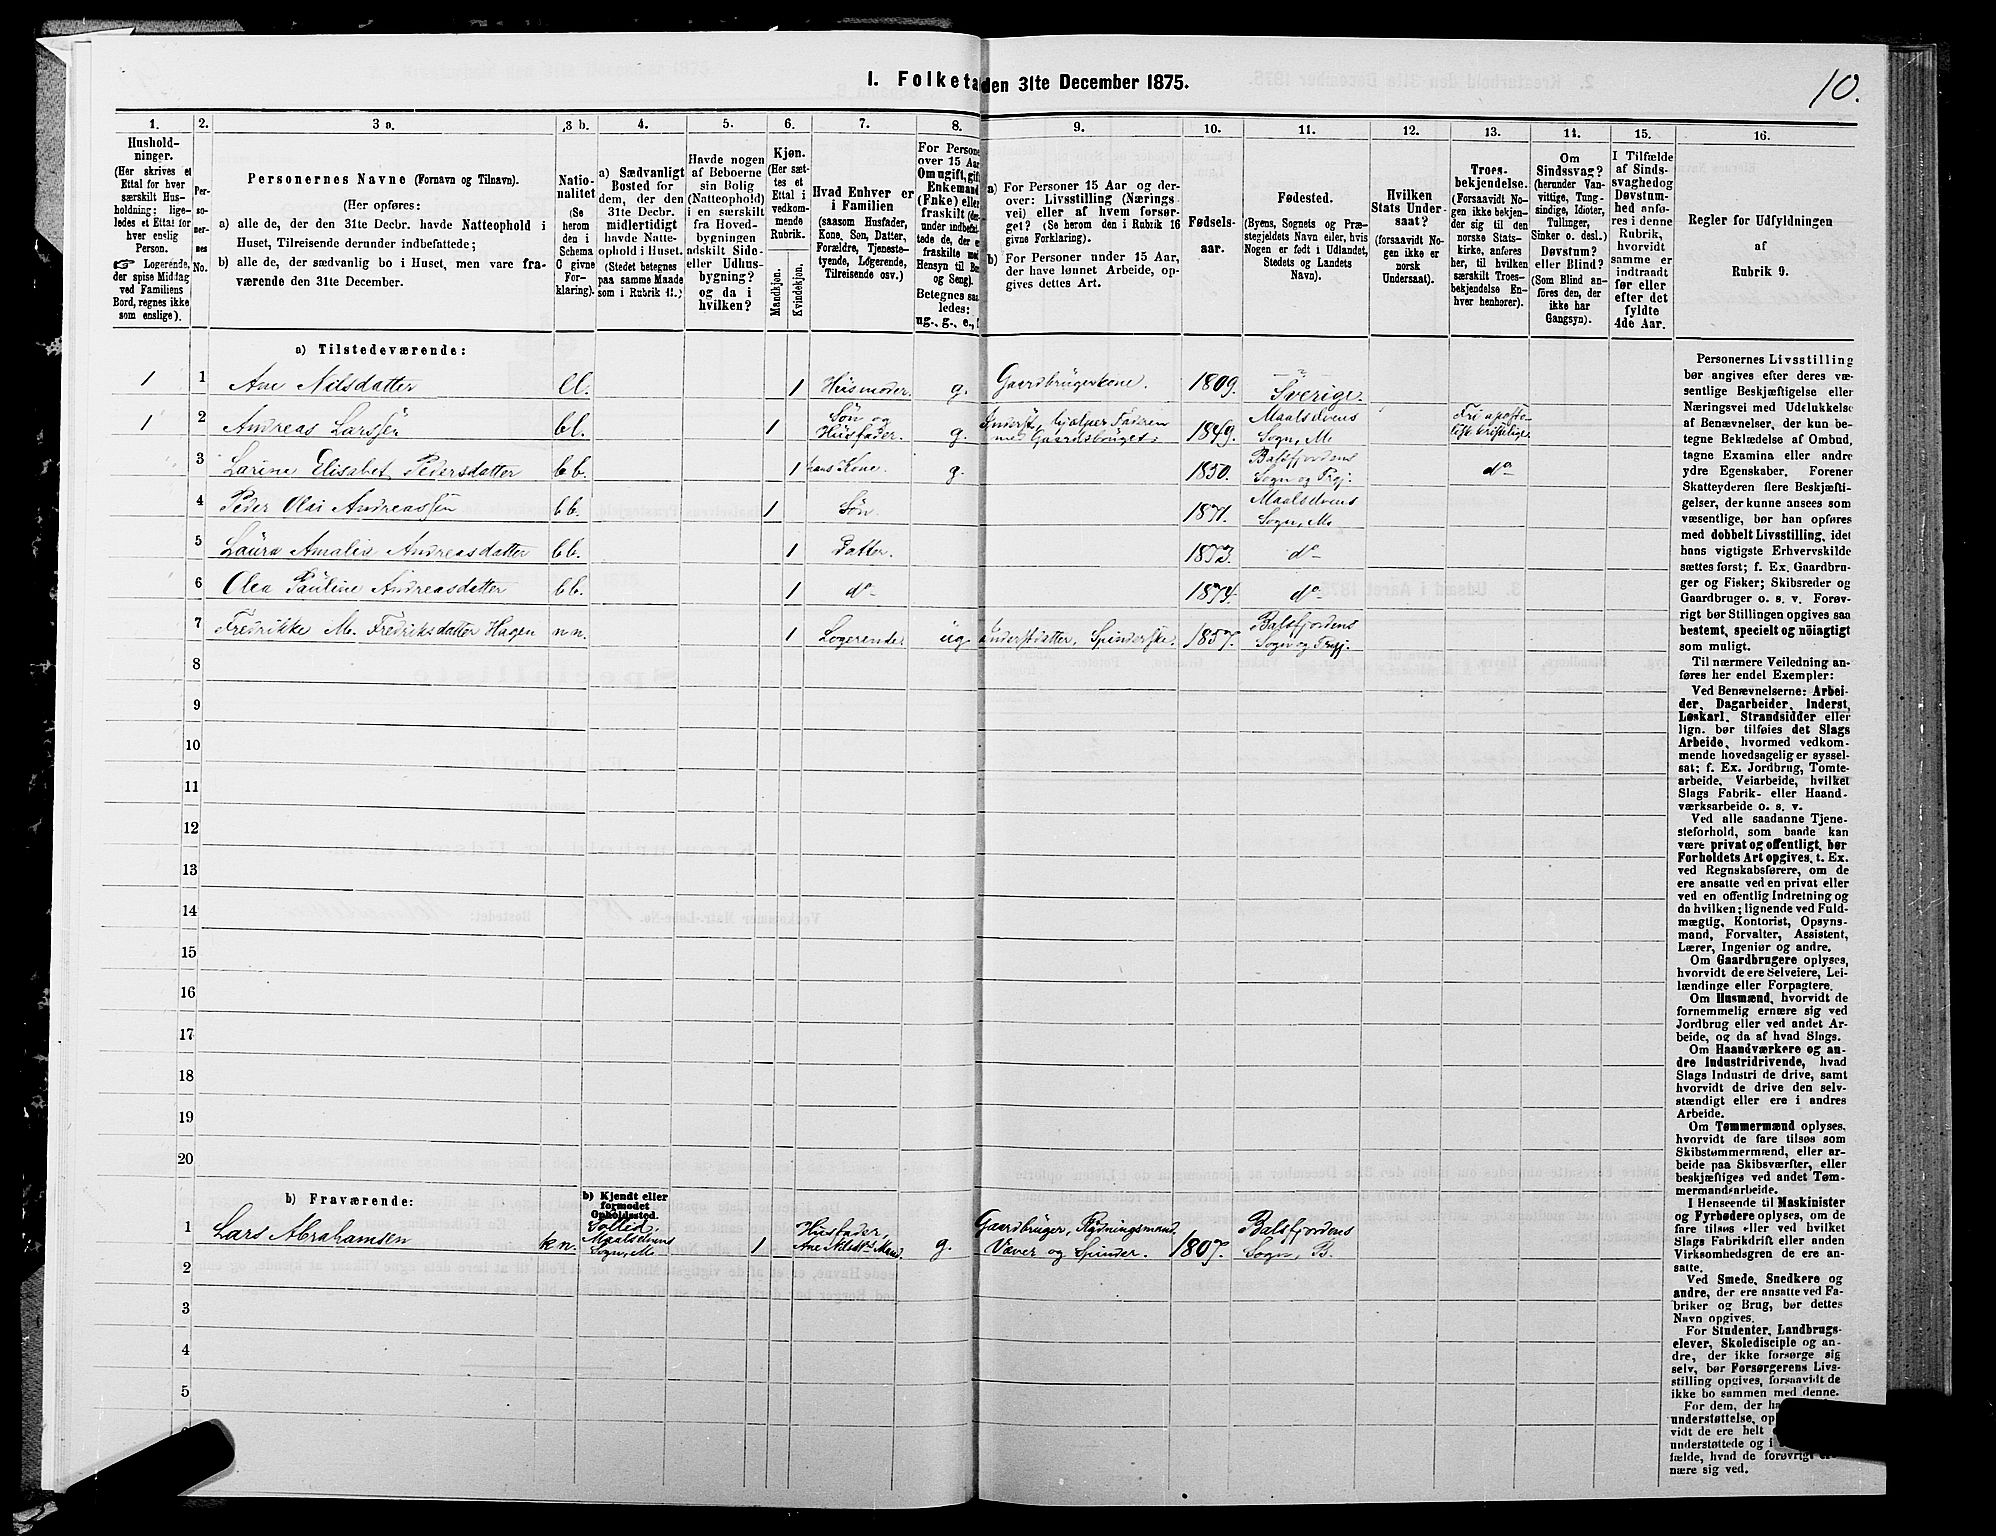 I. Folketa den 31te December 1875.
10.
1.
Hushold-
ninger.
(Her skrives et
Ettal for hver
særskilt Hus-
holdning; lige-
ledes et Ettal for
hver enslig
Person.
☞ Logerende,
der spise Middag
ved Familiens
Bord, regnes ikke
som enslige).
2.
Per-
so-
ner-
nes
No.
3 a.
Personernes Navne (Fornavn og Tilnavn).
(Her opføres:
a) alle de, der den 31te Decbr. havde Natteophold i
Huset, Tilreisende derunder indbefattede;
b) alle de, der sædvanlig bo i Huset, men vare fra-
værende den 31te December.
3 b.
Natio-
nalitet
(Se
herom
den i
Schema
C givne
For-
klaring).
4.
a) Sædvanligt
Bosted for
dem, der den
31te Decbr.
midlertidigt
havde Natte-
ophold i Huset.
(Stedet betegnes
paa samme Maade
som i Rubrik 11.)
5.
Havde nogen
af Beboerne
sin Bolig
(Natteophold)
i en særskilt
fra Hoved-
bygningen
adskilt Side-
eller Udhus-
bygning?
og da i
hvilken?
6.
Kjøn.
(Her sæt-
tes et
Ettal i
vedkom-
mende
Rubrik.
Mandkjøn.
Kvindekjøn.
7.
Hvad Enhver er
i Familien
(saasom Husfader,
Kone, Søn, Datter,
Forældre, Tjeneste-
tyende, Logerende,
Tilreisende osv.)
8.
For Persone
over 15 Aar
Om ugift, gift
Enkemand
(Enke) eller
fraskilt
Betegnes saa
ledes:
ug., g., e.,
9.
a) For Personer 15 Aar og der-
over: Livsstilling (Nærings-
vei) eller af hvem forsør-
get? (Se herom den i Rubrik 16
givne Forklaring).
b) For Personer under 15 Aar,
der have lønnet Arbeide, op-
gives dettes Art.
10.
Fødsels-
aar.
11.
Fødested.
(Byens, Sognets og Præ-
stegjeldets Navn eller, hvis
Nogen er født i Udlandet,
Stedets og Landets
Navn).
12.
Hvilken
Stats Under-
saat?
(forsaavidt No-
gen ikke er
norsk
Undersaat).
13.
Troes-
bekjendelse.
(Forsaavidt No-
gen ikke bekjen-
der sig til den
norske Stats-
kirke, anføres
her, til hvilken
særskilt Troes-
bekjendelse En-
hver henhører).
14.
Om
Sindssvag?
(herunder Van-
vittige, Tung-
sindige, Idioter,
Tullinger,
Sinker o. desl.)
Døvstum?
eller Blind?
(Som Blind an-
føres den, der
ikke har
Gangsyn).
15.
I Tilfælde
af Sinds-
svaghed og
Døvstum-
hed anfø-
res i denne
Rubrik,
hvorvidt
samme er
indtraadt
før eller
efter det
fyldte
4de Aar.
16.
Regler for Udfyldningen
af
Rubrik 9.
a) Tilstedeværende:
1 1 Ane Nilsdatter ll. 1 Husmoder. g. Gaardbrugerkone. 1809. Sverige.
1 2 Andreas Larssen bl. 1 Søn og Husfader. g. Inderst, hjælper Faderen med Gaardsbruget. 1849. Maalselvens Sogn, M. Fri aposto- lisk kristelige
3 Larine Elisabet Pedersdatter bb. 1 hans Kone. g. 1850. Balsfjordens Sogn og Præj. do
4 Peder Olai Andreassen bb. 1 Søn. 1871. Maalselvens Sogn, M.
5 Laura Amalie Andreasdatter bb. 1 Datter. 1873. do
6 Olea Pauline Andreasdatter bb. 1 do 1874. do
7 Fredrikke M. Fredriksdatter Hagen n.n. 1 Logerende ug Spinderske. 1857. Balsfjordens Sogn og Præj.
8
9
10
11
12
13
14
15
16
17
18
19
20
b) Fraværende:
b) Kjendt eller
formodet
Opholdssted.
1 Lars Abrahamsen kn. Maalselvens Sogn, M. 1 Husfader, Ane Nilsd's Mand g. Gaardbruger, Rydningsmand, Væver og Spinder. 1807. Balsfjordens Sogn, B.
2
3
4
5
Personernes Livsstilling
bør angives efter deres væ-
sentlige Beskjæftigelse eller
Næringsvei med Udelukkelse
af Benævnelser, der kun be-
tegne Beklædelse af Ombud,
tagne Examina eller andre
ydre Egenskaber. Forener
Skatteyderen flere Beskjæfti-
gelser, der kunne ansees som
væsentlige, bør han opføres
med dobbelt Livsstilling, idet
hans vigtigste Erhvervskilde
sættes først; f. Ex. Gaardbru-
ger og Fisker; Skibsreder og
Gaardbruger o. s. v. Forøv-
rigt bør Stillingen opgives saa
bestemt, specielt og nöiagtigt
som muligt.
Til nærmere Veiledning an-
føres her endel Exempler:
Ved Benævnelserne: Arbei-
der, Dagarbeider, Inderst,
Løskarl, Strandsidder eller
lign. bør tilføies det Slags
Arbeide, hvormed vedkom-
mende hovedsagelig er syssel-
sat; f. Ex. Jordbrug, Tomte-
arbeide, Veiarbeide, hvilket
Slags Fabrik- eller Haand-
værksarbeide o. s. v.
Ved alle saadanne Tjene-
steforhold, som baade kan
være privat og offentligt, bør
Forholdets Art opgives, t. Ex.
ved Regnskabsførere, om de
ere ansatte ved en privat eller
ved en offentlig Indretning og
da hvilken; lignende ved Fuld-
mægtig, Kontorist, Opsyns-
mand, Forvalter, Assistent,
Lærer, Ingeniør og andre.
Om Gaardbrugere oplyses,
hvorvidt de ere Selveiere, Lei-
lændinge eller Forpagtere.
Om Husmænd, hvorvidt de
fornemmelig ernære sig ved
Jordbrug eller ved andet Ar-
beide, og da af hvad Slags.
Om Haandværkere og an-
dre Industridrivende, hvad
Slags Industri de drive, samt
hvorvidt de drive den selv-
stændigt eller ere i andres
Arbeide.
Om Tømmermænd oplyses,
hvorvidt de fare tilsøs som
Skibstømmermænd, eller ar-
beide paa Skibsværfter, eller
beskjæftiges ved andet Tøm-
mermandsarbeide.
I Henseende til Maskinister
og Fyrbødere oplyses, om de
fare tilsøs eller ved hvilket
Slags Fabrikdrift eller anden
Virksomhedsgren de ere an-
satte.
Ved Smede, Snedkere og
andre, der ere ansatte ved Fa-
briker og Brug, bør dettes
Navn opgives.
For Studenter, Landbrugs-
elever, Skoledisciple og an-
dre, der ikke forsørge sig
selv, bør Forsørgerens Livs-
stilling opgives, forsaavidt de
ikke bo sammen med denne.
For dem, der ha
understøttelse, op
vidt de ere helt
understøttede og i
fælde, hvad de forøvrigt er-
nære sig ved.